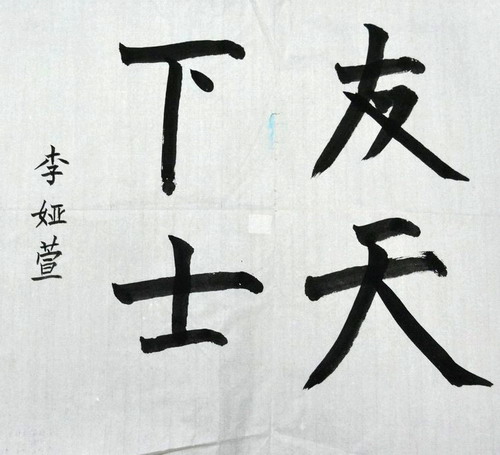 友天
下士
李娅萱